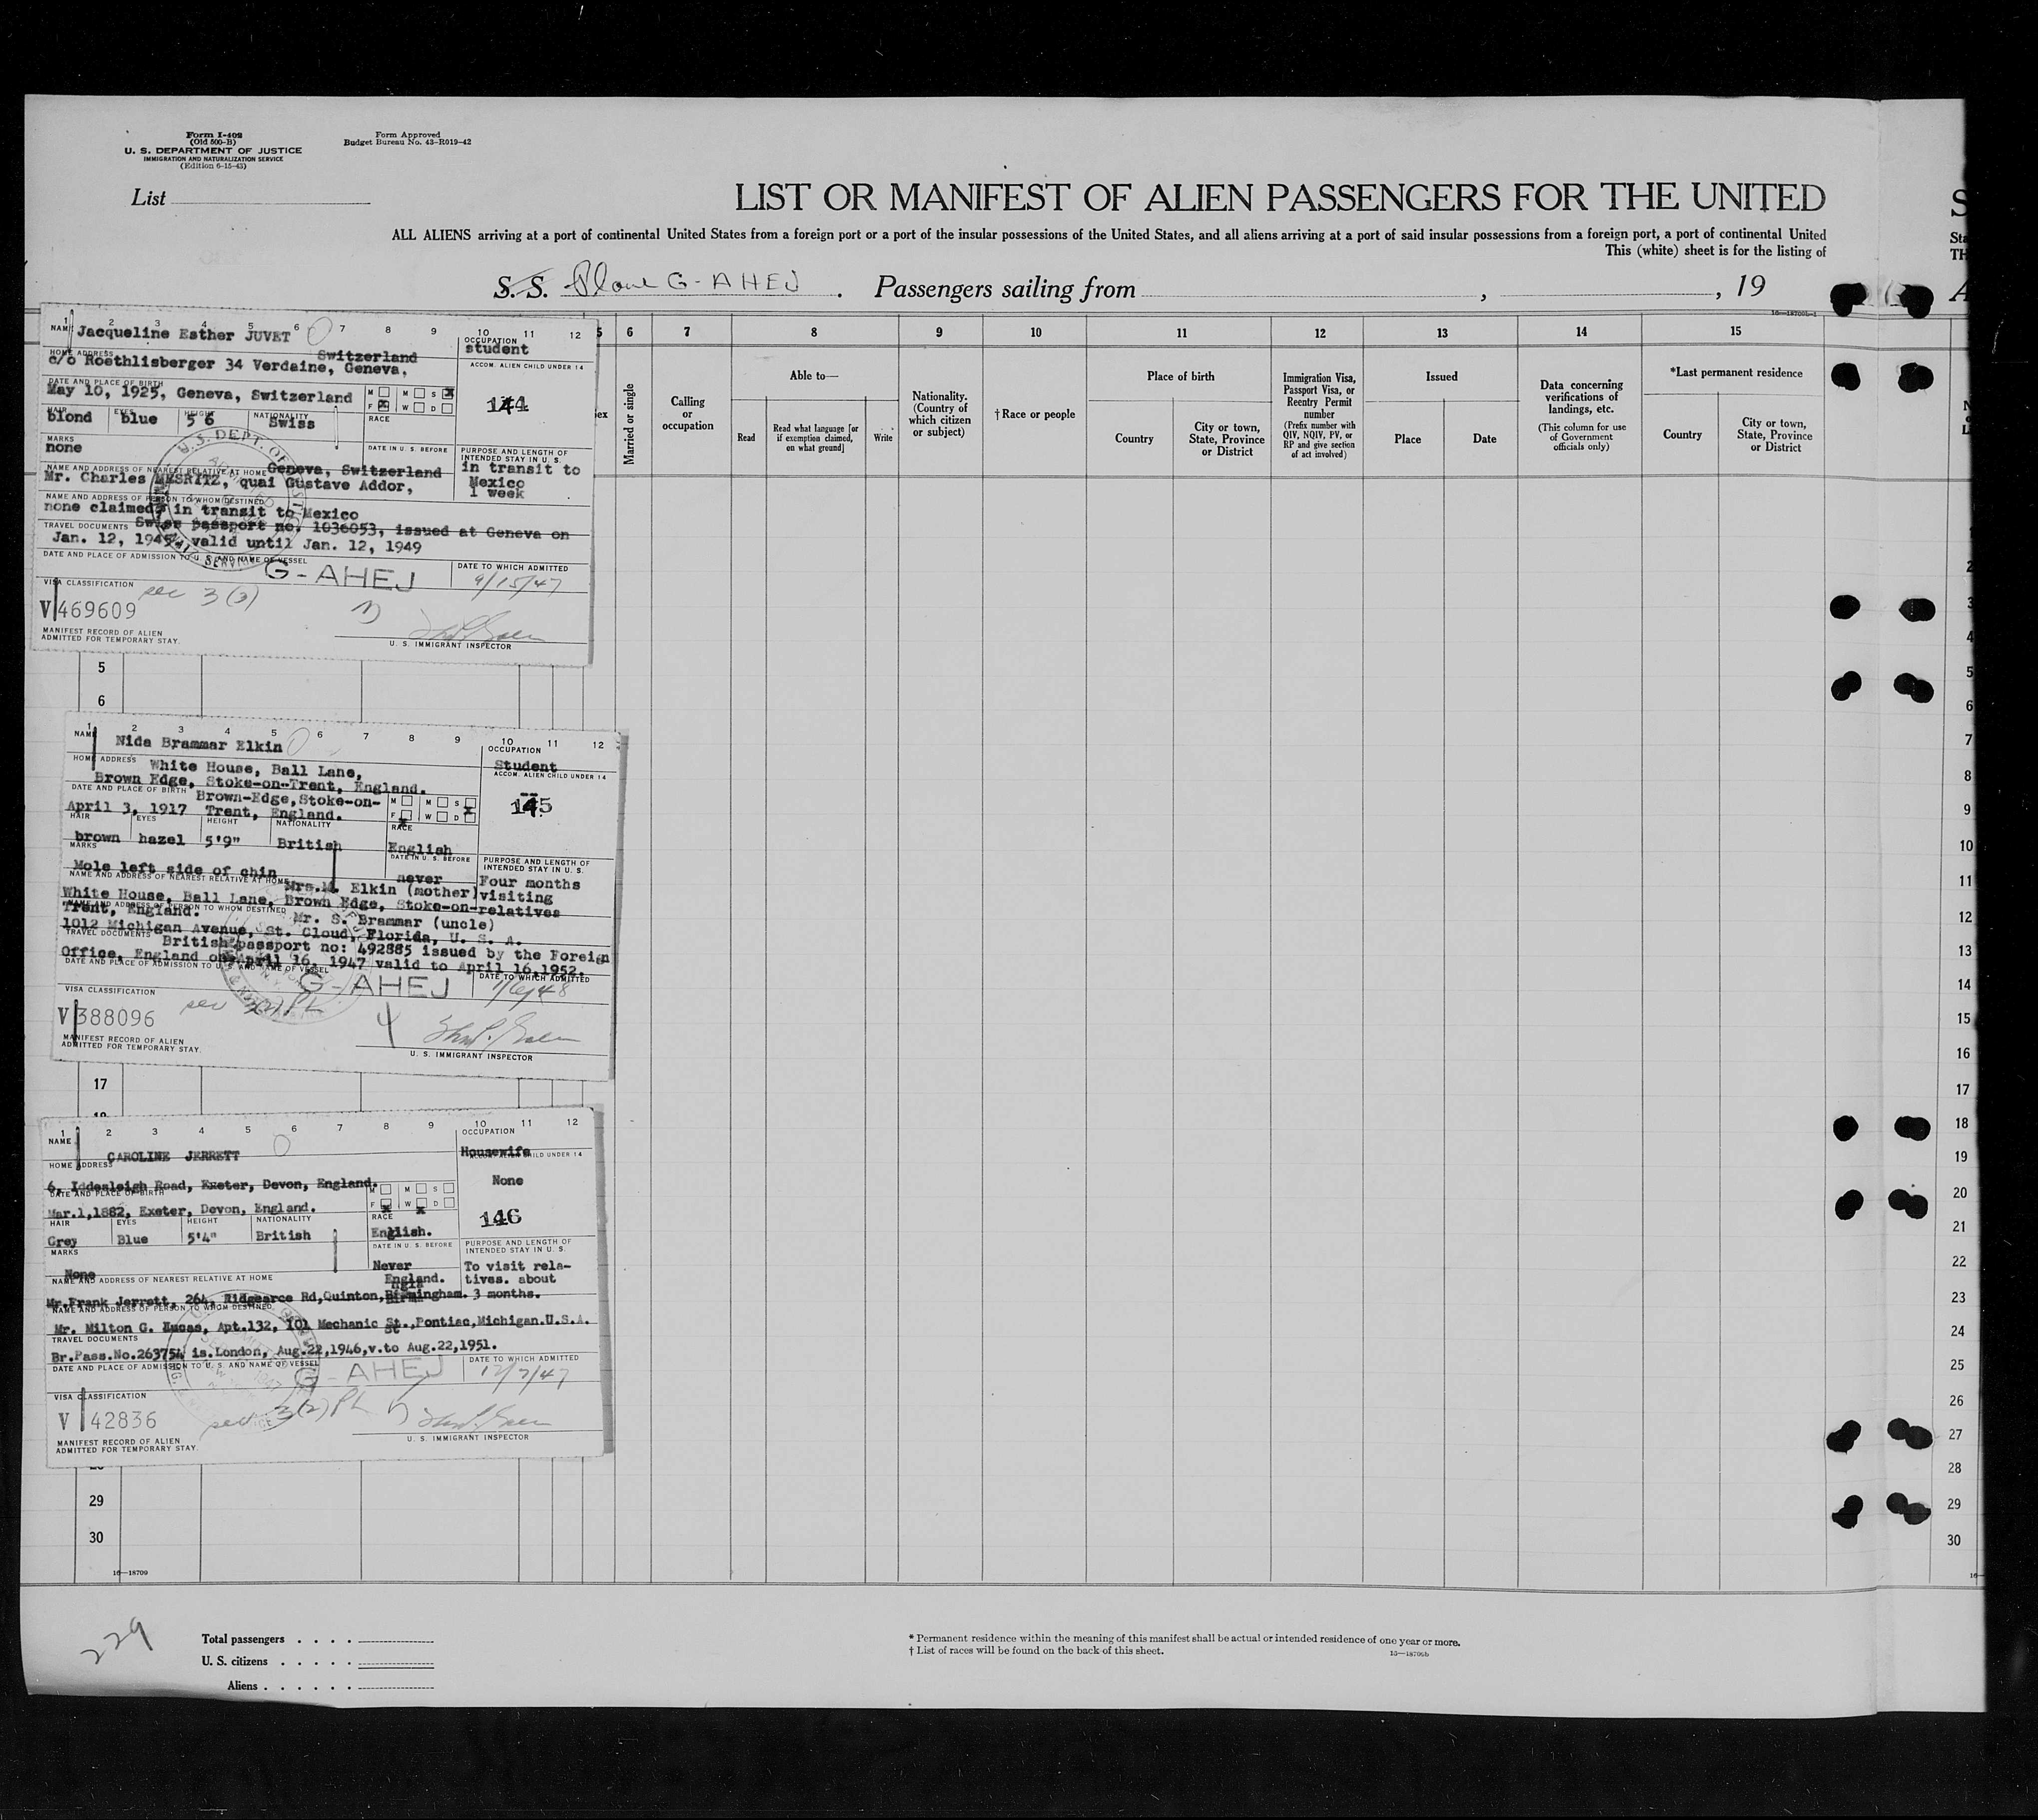 Form I-402
(Old 500-B)
U. S. DEPARTMENT OF JUSTICE
IMMIGRATION AND NATURALIZATION SERVICE
(Edition 6-15-43)
Form Approved
Budget Bureau No. 43-R019-42
List
LIST OR MANIFEST OF ALIEN PASSENGERS FOR THE UNITED
ALL ALIENS arriving at a port of continental United States from a foreign port or a port of the insular possessions of the United States, and all aliens arriving at a port of said insular possessions from a foreign port, a port of continental United
This (white) sheet is for the listing of
S. S. Plane G-AHEJ . Passengers sailing from , , 19
16—18709b-1
5 6 7 8 9 10 11 12 13 14 15
Married or single
Calling or occupation
Able to—
Read
Read what language [or if exemption claimed, on what ground]
Write
Nationality. (Country of which citizen or subject)
†Race or people
Place of birth
Country
City or town, State, Province or District
Immigration Visa, Passport Visa, or Reentry Permit number
(Prefix number with QIV, NQIV, PV, or RP and give section of act involved)
Issued
Place
Date
Data concerning verifications of landings, etc.
(This column for use of Government officials only)
*Last permanent residence
Country
City or town, State, Province or District
1 2 3 4 5 6 7 8 9 10 11 12
NAME Jacqueline Esther JUVET
OCCUPATION student
HOME ADDRESS Switzerland
c/o Roethlisberger 34 Verdaine, Geneva,
ACCOM. ALIEN CHILD UNDER 14
DATE AND PLACE OF BIRTH
May 10, 1925, Geneva, Switzerland
M M S x
F x W D
144
HAIR EYES HEIGHT NATIONALITY RACE
blond blue 5 6 Swiss
MARKS none
DATE IN U. S. BEFORE
PURPOSE AND LENGTH OF INTENDED STAY IN U. S.
in transit to
Mexico
1 week
NAME AND ADDRESS OF NEAREST RELATIVE AT HOME Geneva, Switzerland
Mr. Charles MESRITZ, quai Gustave Addor,
NAME AND ADDRESS OF PERSON TO WHOM DESTINED
none claimed, in transit to Mexico
TRAVEL DOCUMENTS Swiss passport no. 1036053, issued at Geneva on
Jan. 12, 1945, valid until Jan. 12, 1949
DATE AND PLACE OF ADMISSION TO U. S. AND NAME OF VESSEL
G-AHEJ
DATE TO WHICH ADMITTED
9/15/47
VISA CLASSIFICATION
sec 3(3)
V 469609
MANIFEST RECORD OF ALIEN
ADMITTED FOR TEMPORARY STAY.
U. S. IMMIGRANT INSPECTOR
5
6
1 2 3 4 5 6 7 8 9 10 11 12
NAME Nida Brammar Elkin
OCCUPATION
Student
HOME ADDRESS White House, Ball Lane,
Brown Edge, Stoke-on-Trent, England.
ACCOM. ALIEN CHILD UNDER 14
DATE AND PLACE OF BIRTH Brown-Edge, Stoke-on-
April 3, 1917 Trent, England.
M M S x
F x W D
145
HAIR EYES HEIGHT NATIONALITY RACE
brown hazel 5'9" British English
MARKS
Mole left side of chin
DATE IN U. S. BEFORE
never
PURPOSE AND LENGTH OF INTENDED STAY IN U. S.
Four months
visiting
relatives
NAME AND ADDRESS OF NEAREST RELATIVE AT HOME Mrs.M. Elkin (mother)
White House, Ball Lane, Brown Edge, Stoke-on-
Trent, England.
NAME AND ADDRESS OF PERSON TO WHOM DESTINED Mr. S. Brammar (uncle)
1012 Michigan Avenue, St. Cloud, Florida, U. S. A.
TRAVEL DOCUMENTS British passport no: 492885 issued by the Foreign
Office, England on April 16, 1947 valid to April 16,1952.
DATE AND PLACE OF ADMISSION TO U. S. AND NAME OF VESSEL
G-AHEJ
DATE TO WHICH ADMITTED
VISA CLASSIFICATION
V 388096
MANIFEST RECORD OF ALIEN
ADMITTED FOR TEMPORARY STAY.
U. S. IMMIGRANT INSPECTOR
17
1 2 3 4 5 6 7 8 9 10 11 12
NAME
CAROLINE JERRETT
OCCUPATION
Housewife
HOME ADDRESS
6, Iddesleigh Road, Exeter, Devon, England.
ACCOM. ALIEN CHILD UNDER 14
None
DATE AND PLACE OF BIRTH
Mar.1,1882, Exeter, Devon, England.
M M S
F x W x D
146
HAIR EYES HEIGHT NATIONALITY RACE
Grey Blue 5'4" British English.
MARKS
None
DATE IN U. S. BEFORE
Never
PURPOSE AND LENGTH OF INTENDED STAY IN U. S.
To visit rela-
tives. about
3 months.
NAME AND ADDRESS OF NEAREST RELATIVE AT HOME England.
Mr.Frank Jerrett, 264, Ridgearce Rd,Quinton,Birmingham.
NAME AND ADDRESS OF PERSON TO WHOM DESTINED
Mr. Milton G. Lucas, Apt.132, 101 Mechanic St.,Pontiac,Michigan.U.S.A.
TRAVEL DOCUMENTS
Br.Pass.No.263754 is.London, Aug.22,1946,v.to Aug.22,1951.
DATE AND PLACE OF ADMISSION TO U. S. AND NAME OF VESSEL
G-AHEJ
DATE TO WHICH ADMITTED
12/7/47
VISA CLASSIFICATION
sec 3(2) PL
V 42836
MANIFEST RECORD OF ALIEN
ADMITTED FOR TEMPORARY STAY.
U. S. IMMIGRANT INSPECTOR
29
30
16—18709
2
3
4
5
6
7
8
9
10
11
12
13
14
15
16
17
18
19
20
21
22
23
24
25
26
27
28
29
30
229
Total passengers
U. S. citizens
Aliens
* Permanent residence within the meaning of this manifest shall be actual or intended residence of one year or more.
† List of races will be found on the back of this sheet.
16—18709b